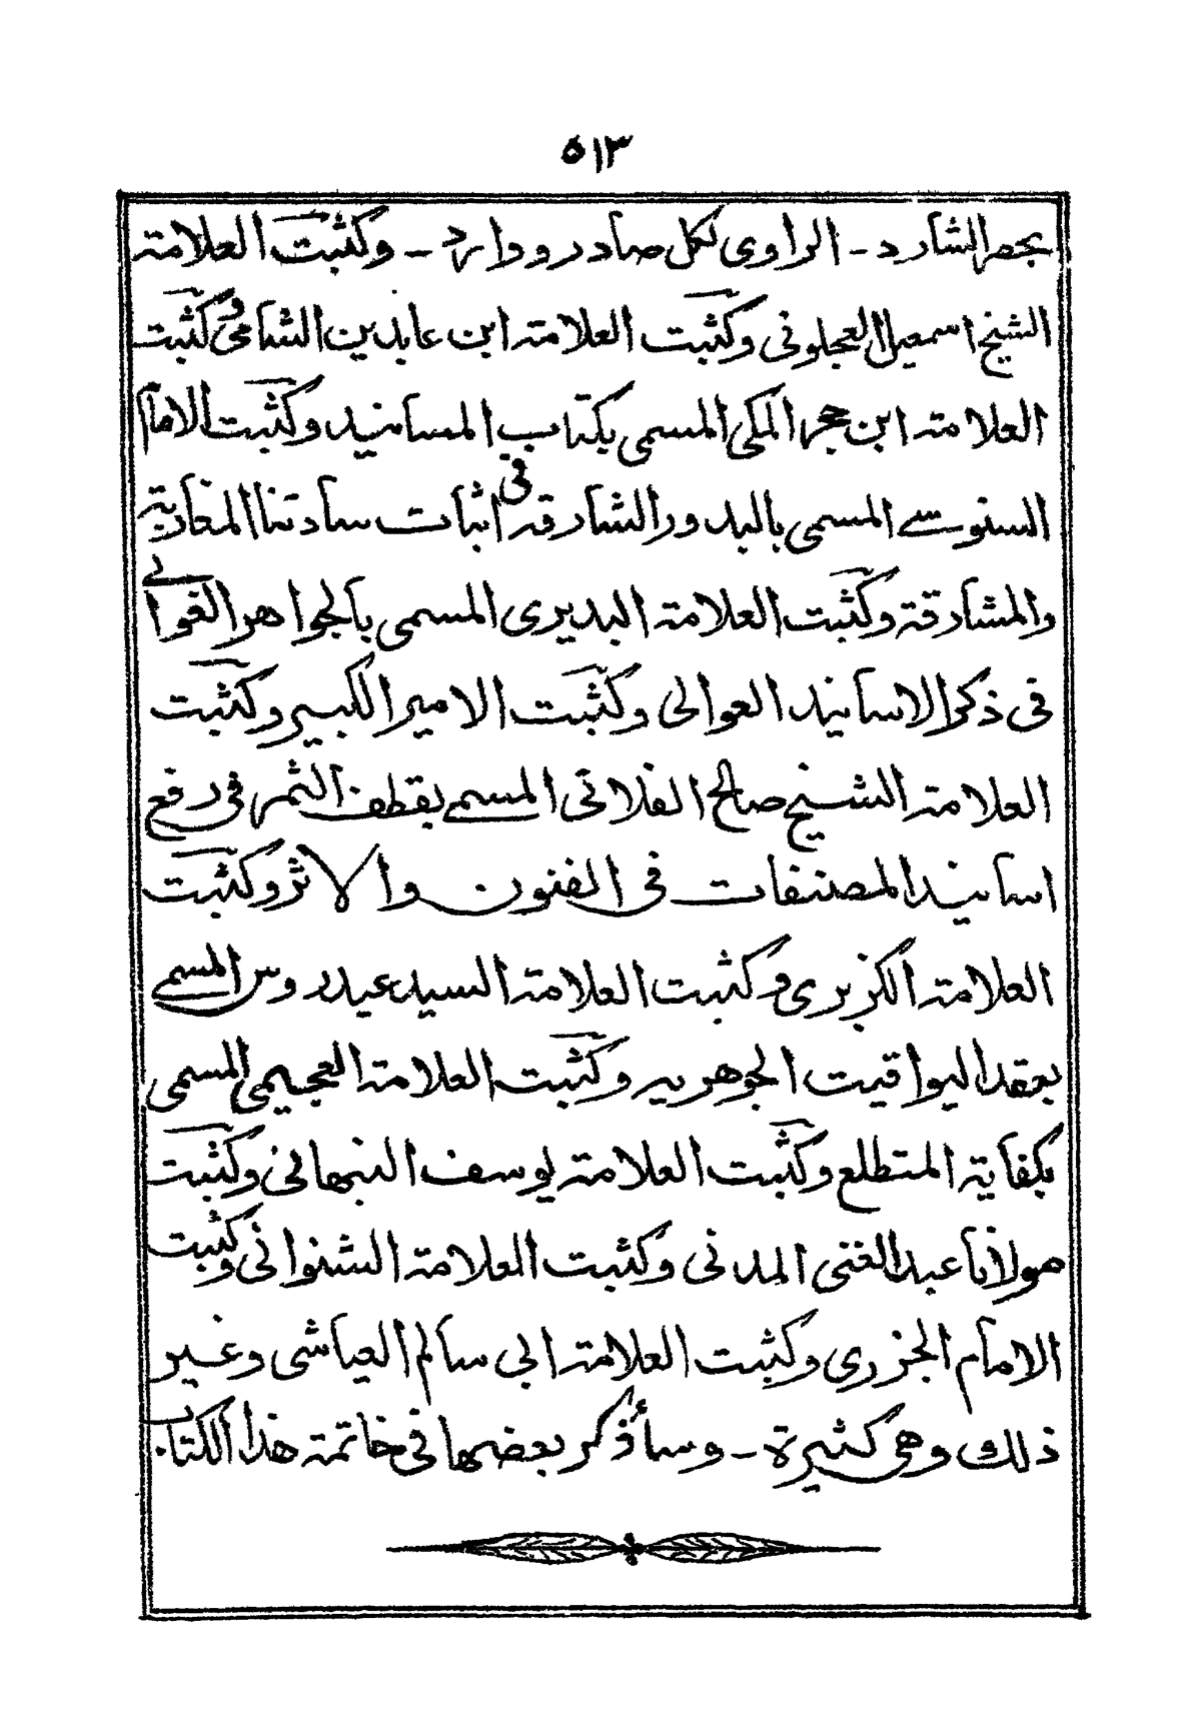 ٥١٣
بحصر الشارد - الراوى لكل صادر ووارد - وكثبت العلامة
الشيخ اسمعيل العجلونى وكثبت العلامة ابن عابدين الشامى وكثبت
العلامة ابن حجر المكى المسمى بكتاب المسانيد وكثبت الامام
السنوسى المسمى بالبدور الشارقة فى اثبات سادتنا المغاربة
والمشارقة وكثبت العلامة البديرى المسمى بالجواهر الغوالى
فى ذكر الاسانيد العوالى وكثبت الامير الكبير وكثبت
العلامة الشيخ صالح الفلانى المسمى بقطف الثمر فى رفع
اسانيد المصنفات فى الفنون والاثر وكثبت
العلامة الكزبرى وكثبت العلامة السيد عيدروس المسمى
بعقد اليواقيت الجوهرية وكثبت العلامة العجيمى المسمى
بكفاية المتطلع وكثبت العلامة يوسف النبهانى وكثبت
مولانا عبد الغنى المدنى وكثبت العلامة الشنوانى وكثبت
الامام الجزرى وكثبت العلامة ابى سالم العياشى وغير
ذلك وهى كثيرة - وسأذكر بعضها فى خاتمة هذا الكتاب.